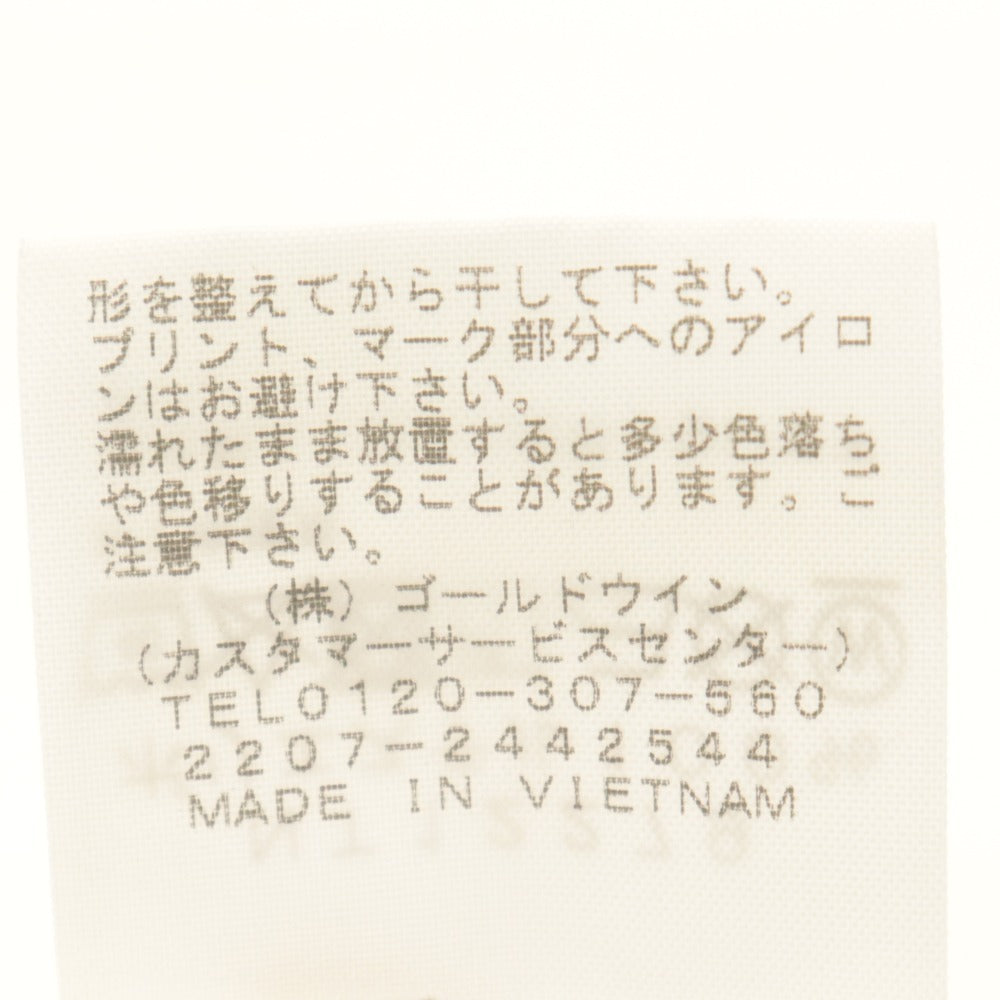 形を整えてから干して下さい。
プリント、マーク部分へのアイロ
ンはお避け下さい。
濡れたまま放置すると多少色落ち
や色移りすることがあります。ご
注意下さい。
(株)ゴールドウイン
(カスタマーサービスセンター)
TEL0120-307-560
2207-2442544
MADE IN VIETNAM